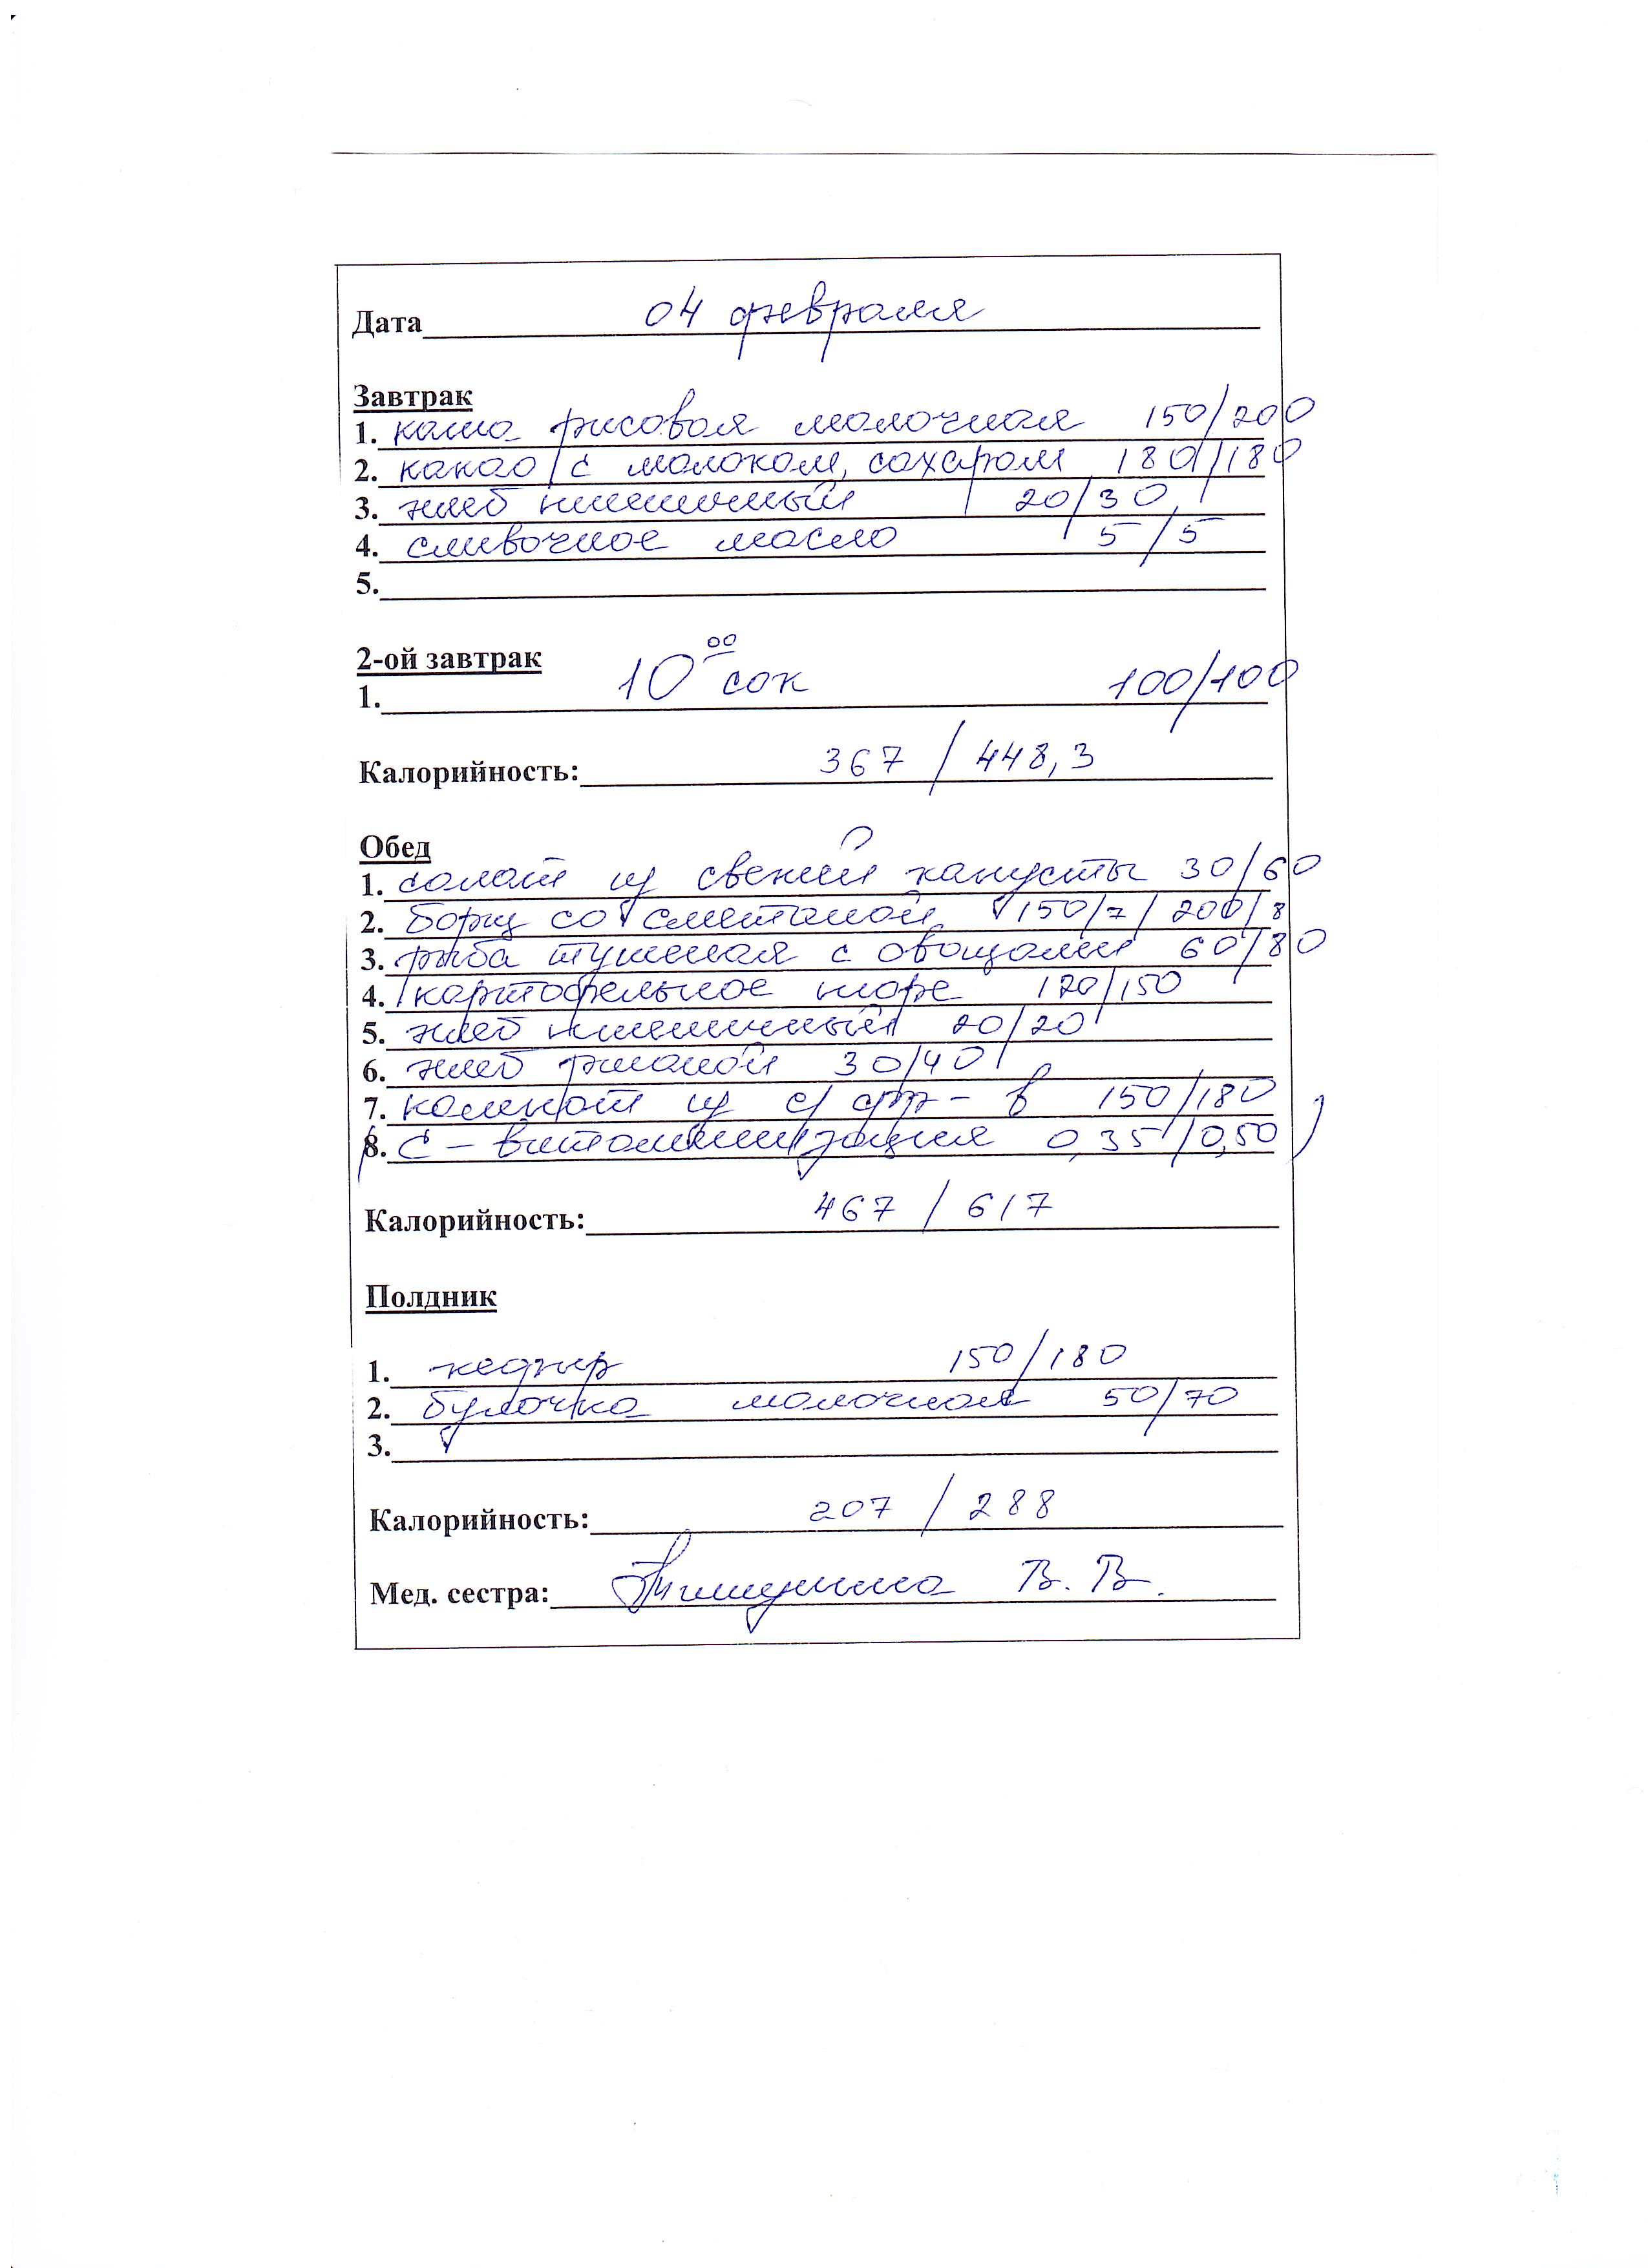 Дата 04 февраля
Завтрак
1. каша рисовая молочная 150/200
2. какао с молоком, сахаром 180/180
3. хлеб пшеничный 20/30
4. сливочное масло 5/5
5.
2-ой завтрак
1. 10 00 сок 100/100
Калорийность: 367 / 448,3
Обед
1. салат из свежей капусты 30/60
2. борщ со сметаной 150/7/200/8
3. рыба тушеная с овощами 60/80
4. картофельное пюре 120/150
5. хлеб пшеничный 20/20
6. хлеб ржаной 30/40
7. компот из с/фр-в 150/180
8. С-витаминизация 0,35/0,50
Калорийность: 467 / 617
Полдник
1. кефир 150/180
2. булочка молочная 50/70
3.
Калорийность: 207 / 288
Мед. сестра: В. В.